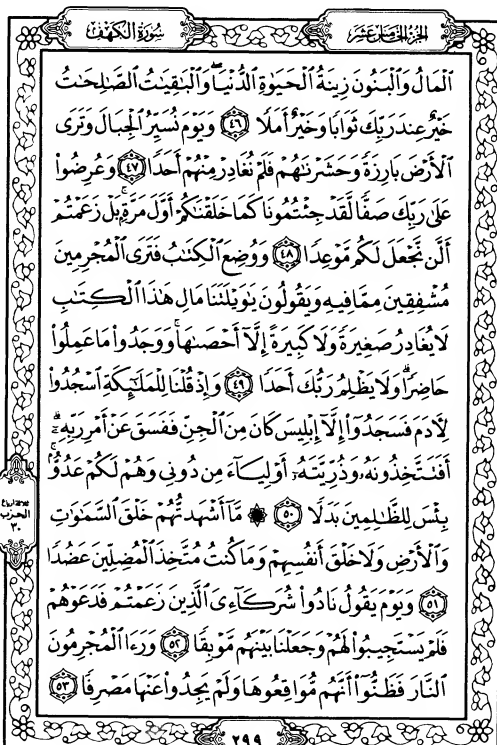 الجزء الخامس عشر
سورة الكهف
الْمَالُ وَالْبَنُونَ زِينَةُ الْحَيَوٰةِ الدُّنْيَا ۖ وَالْبَٰقِيَٰتُ الصَّٰلِحَٰتُ
خَيْرٌ عِندَ رَبِّكَ ثَوَابًا وَخَيْرٌ أَمَلًا ٤٦ وَيَوْمَ نُسَيِّرُ الْجِبَالَ وَتَرَى
الْأَرْضَ بَارِزَةً وَحَشَرْنَٰهُمْ فَلَمْ نُغَادِرْ مِنْهُمْ أَحَدًا ٤٧ وَعُرِضُوا۟
عَلَىٰ رَبِّكَ صَفًّا لَّقَدْ جِئْتُمُونَا كَمَا خَلَقْنَٰكُمْ أَوَّلَ مَرَّةٍۭ ۚ بَلْ زَعَمْتُمْ
أَلَّن نَّجْعَلَ لَكُم مَّوْعِدًا ٤٨ وَوُضِعَ الْكِتَٰبُ فَتَرَى الْمُجْرِمِينَ
مُشْفِقِينَ مِمَّا فِيهِ وَيَقُولُونَ يَٰوَيْلَتَنَا مَالِ هَٰذَا الْكِتَٰبِ
لَا يُغَادِرُ صَغِيرَةً وَلَا كَبِيرَةً إِلَّآ أَحْصَىٰهَا ۚ وَوَجَدُوا۟ مَا عَمِلُوا۟
حَاضِرًا ۗ وَلَا يَظْلِمُ رَبُّكَ أَحَدًا ٤٩ وَإِذْ قُلْنَا لِلْمَلَٰٓئِكَةِ اسْجُدُوا۟
لِءَادَمَ فَسَجَدُوٓا۟ إِلَّآ إِبْلِيسَ كَانَ مِنَ الْجِنِّ فَفَسَقَ عَنْ أَمْرِ رَبِّهِۦٓ ۗ
أَفَتَتَّخِذُونَهُۥ وَذُرِّيَّتَهُۥٓ أَوْلِيَآءَ مِن دُونِى وَهُمْ لَكُمْ عَدُوٌّۢ ۚ
بِئْسَ لِلظَّٰلِمِينَ بَدَلًا ٥٠ ۞ مَّآ أَشْهَدتُّهُمْ خَلْقَ السَّمَٰوَٰتِ
وَالْأَرْضِ وَلَا خَلْقَ أَنفُسِهِمْ وَمَا كُنتُ مُتَّخِذَ الْمُضِلِّينَ عَضُدًا
٥١ وَيَوْمَ يَقُولُ نَادُوا۟ شُرَكَآءِىَ الَّذِينَ زَعَمْتُمْ فَدَعَوْهُمْ
فَلَمْ يَسْتَجِيبُوا۟ لَهُمْ وَجَعَلْنَا بَيْنَهُم مَّوْبِقًا ٥٢ وَرَءَا الْمُجْرِمُونَ
النَّارَ فَظَنُّوٓا۟ أَنَّهُم مُّوَاقِعُوهَا وَلَمْ يَجِدُوا۟ عَنْهَا مَصْرِفًا ٥٣
ثلاثة أرباع
الحزب
٣٠
٢٩٩